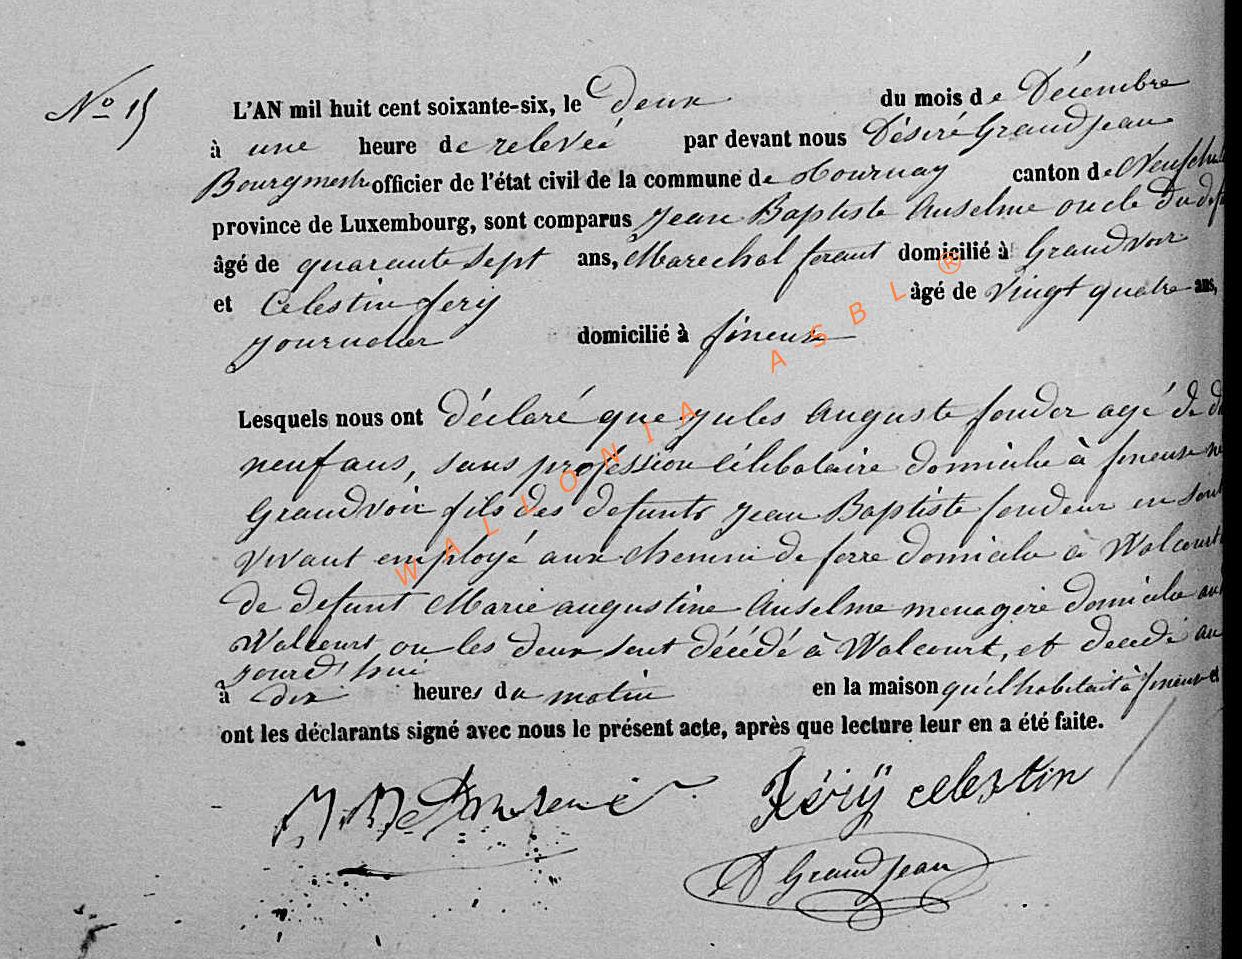 No 15
L'AN mil huit cent soixante-six, le deux du mois de Décembre
à une heure de relevée par devant nous Désiré Grandjean
Bourgmestre officier de l'état civil de la commune de Tournay canton de Neufchat
province de Luxembourg, sont comparus Jean Baptiste Anselme oncle du def
âgé de quarante sept ans, Marechal ferant domicilié à Grandvoir
et Celestin fery âgé de vingt quatre ans,
journalier domicilié à fineuse
Lesquels nous ont déclaré que jules Auguste fonder agé de d
neuf ans, sans profession célibataire domicilie à fineuse né
Grandvoir fils des defunts Jean Baptiste fondeur en sont
vivant employé aux chemin de ferre domicilie à Walcourt
de defunt Marie augustine Anselme menagère domicilie au
Walcourt ou les deux sont décédé à Walcourt, et decedé au
jourd'hui
à dix heures du matin en la maison qu'il habitait à fineuse et
ont les déclarants signé avec nous le présent acte, après que lecture leur en a été faite.
Férÿ celestin
D Grandjean
WALLONIA ASBL ®